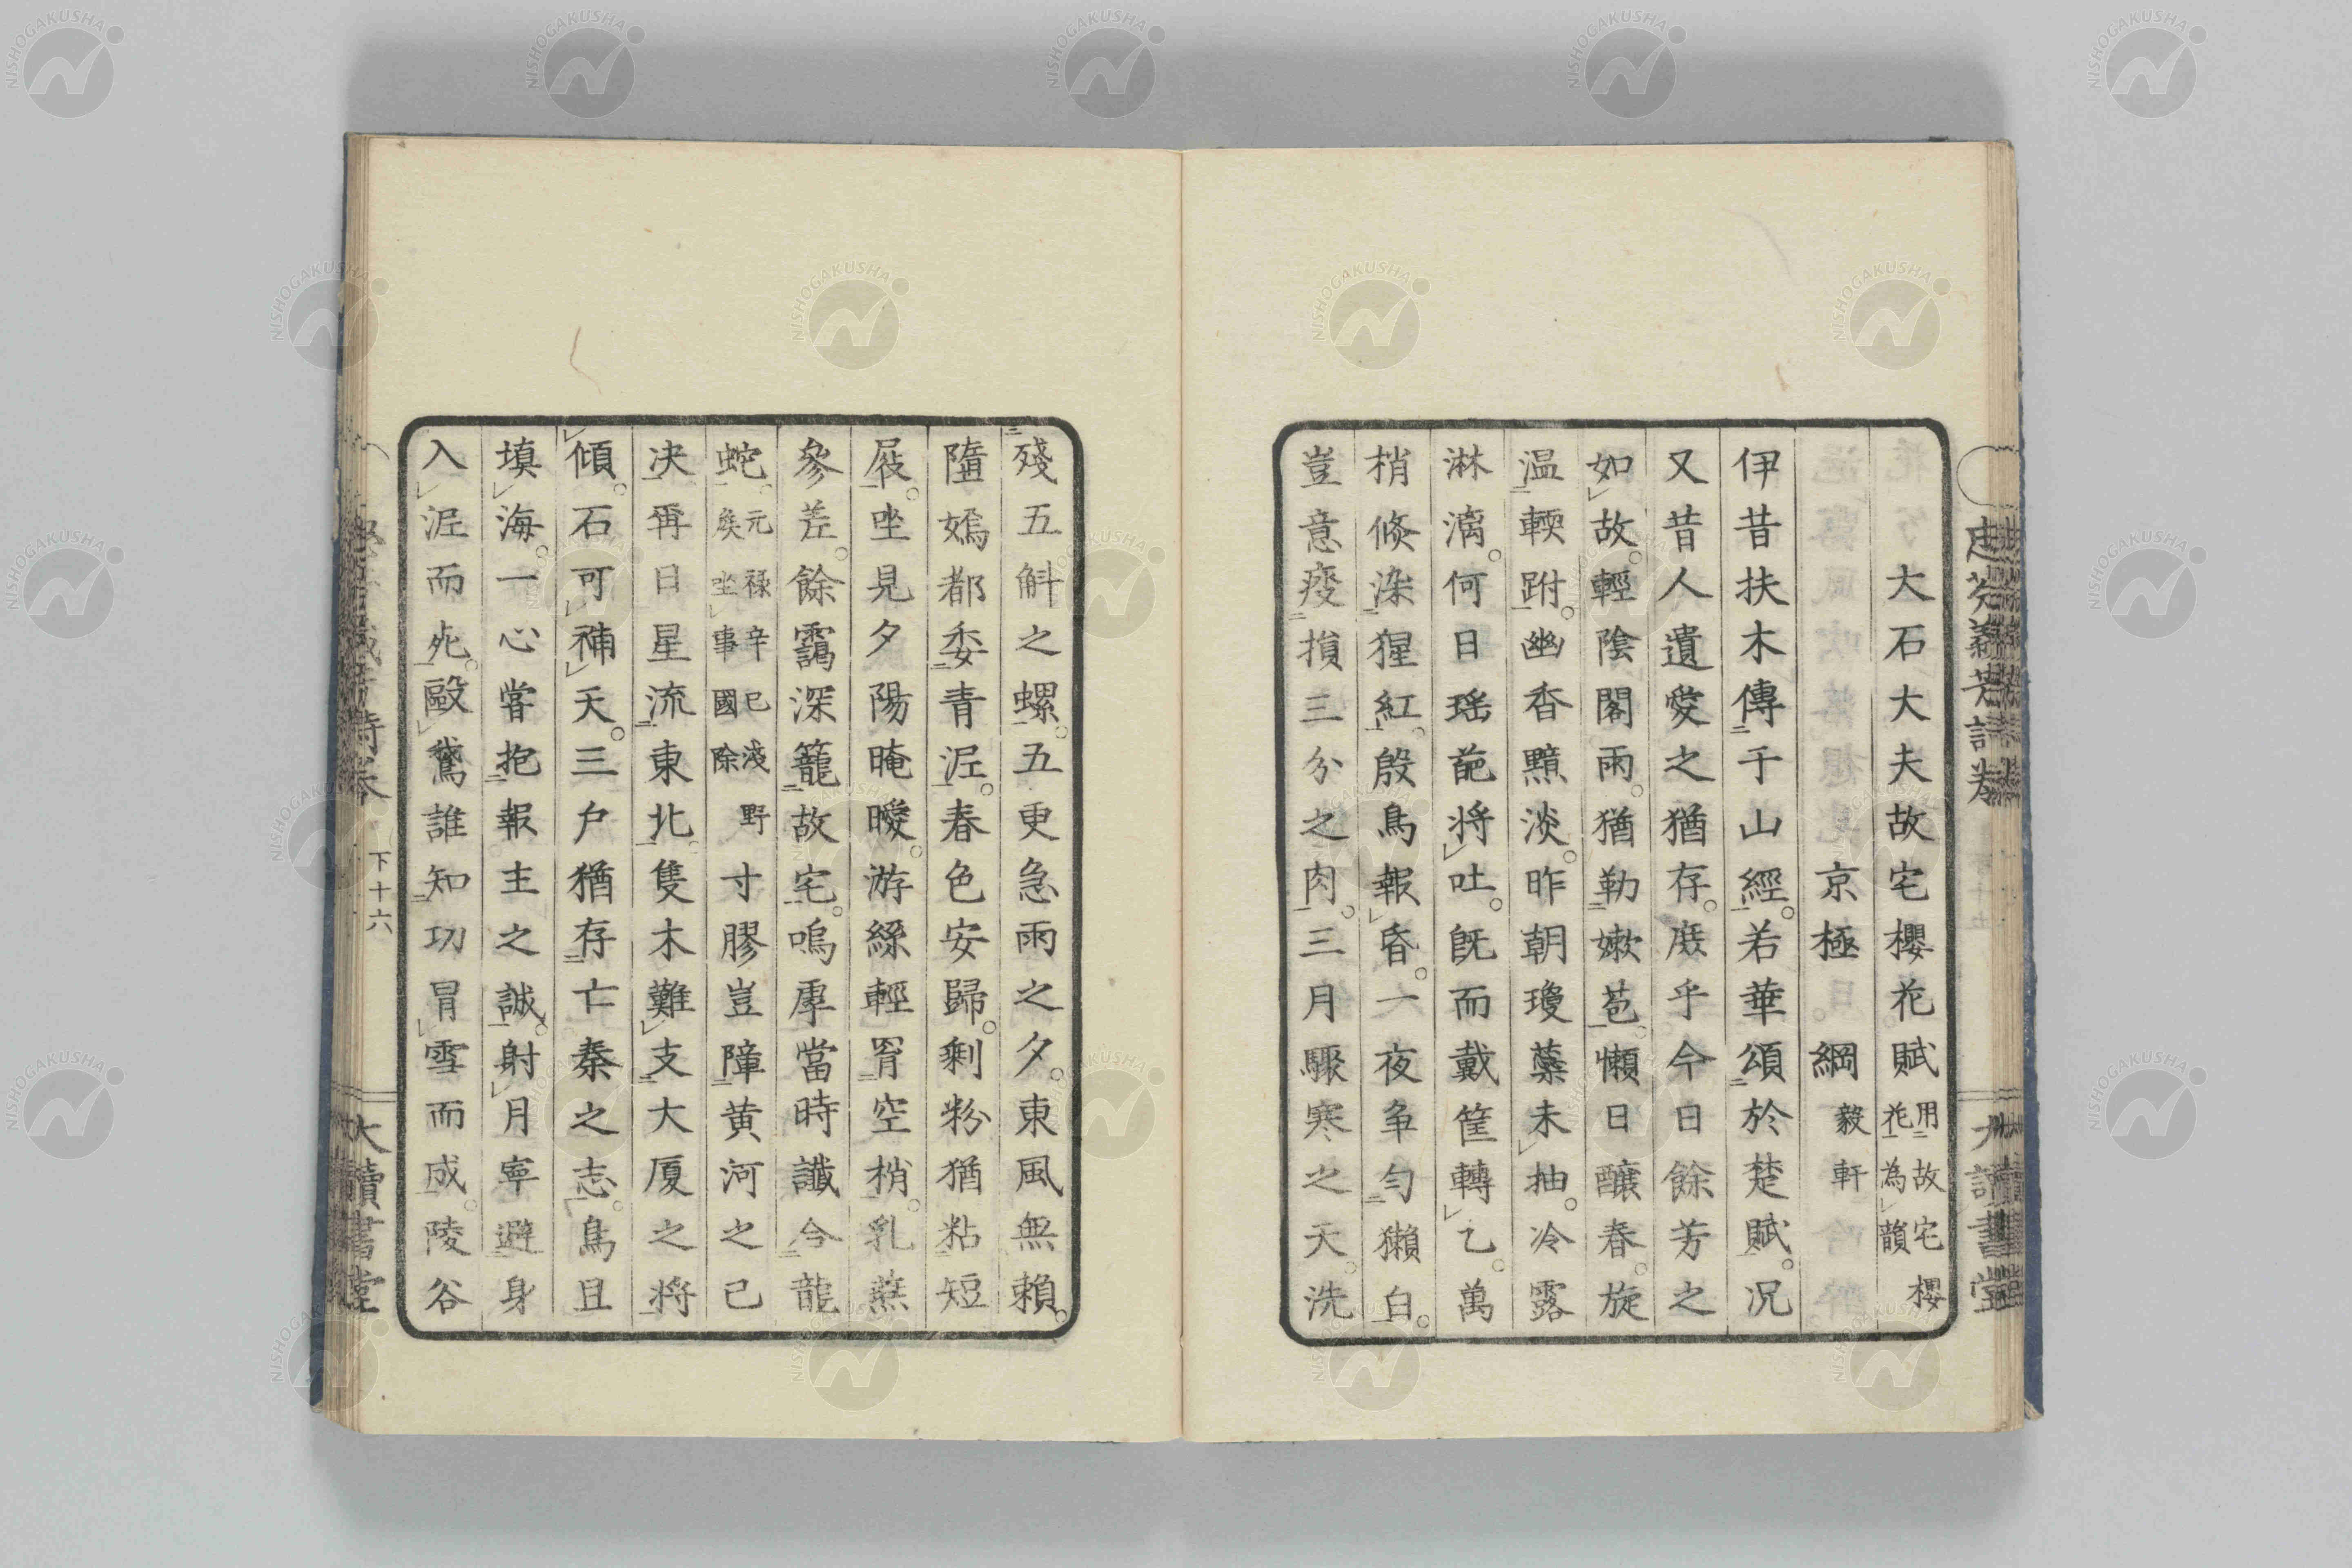 大石大夫故宅櫻花賦 用故宅櫻花為韻
京極 綱 毅軒
伊昔扶木傳于山經。若華頌於楚賦。况
又昔人遺愛之猶存。庶乎今日餘芳之
如故。輕陰閣雨。猶勒嫩苞。懶日釀春。旋
温輭跗。幽香黯淡。昨朝瓊蘂未抽。冷露
淋漓。何日瑶葩將吐。既而戴筐轉乙。萬
梢倏染猩紅。殷鳥報昏。一夜争勻獺白。
豈意痠損三分之肉。三月驟寒之天。洗
殘五斛之螺。五更急雨之夕。東風無賴。
隋嫣都委青泥。春色安歸。剩粉猶粘短
屐。坐見夕陽晻曖。游絲輕罥空梢。乳燕
參差。餘靄深籠故宅。嗚虖當時讖今龍
蛇。元禄辛巳淺野矦坐事國除寸膠豈障黄河之已
决。再日星流東北。隻木難支大厦之將
傾。石可補天。三户猶存亡秦之志。鳥且
填海。一心嘗抱報主之誠。射月寧避身
入泥而死。毆鵞誰知功冒雪而成。陵谷
下十六
大讀書堂
NISHOGAKUSHA